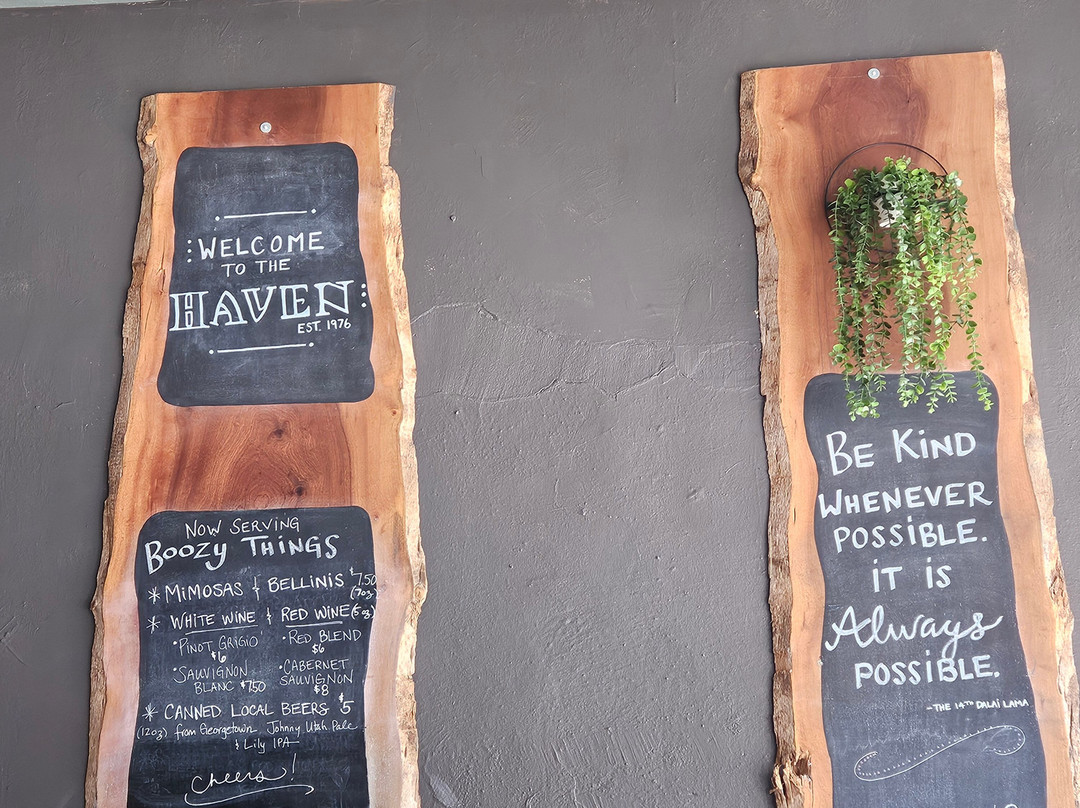 WELCOME
TO THE
HAVEN
EST. 1976
NOW SERVING
BOOZY THINGS
* MIMOSAS & BELLINIS $7.50
(7oz)
* WHITE WINE & RED WINE (5oz)
• PINOT GRIGIO
$6
• SAUVIGNON
BLANC $7.50
• RED BLEND
$6
• CABERNET
SAUVIGNON
$8
* CANNED LOCAL BEERS $5
(12oz) from Georgetown, Johnny Utah Pale
& Lily IPA
Cheers!
BE KIND
WHENEVER
POSSIBLE.
IT IS
Always
POSSIBLE.
-THE 14TH DALAI LAMA